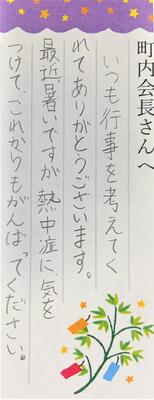 町内会長さんへ
いつも行事を考えてく
れてありがとうございます。
最近、暑いですが、熱中症に、気を
つけて、これからもがんばってください。